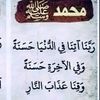 محمد ﷺ
رَبَّنَا آتِنَا فِي الدُّنْيَا حَسَنَةً
وَفِي الآخِرَةِ حَسَنَةً
وَقِنَا عَذَابَ النَّارِ